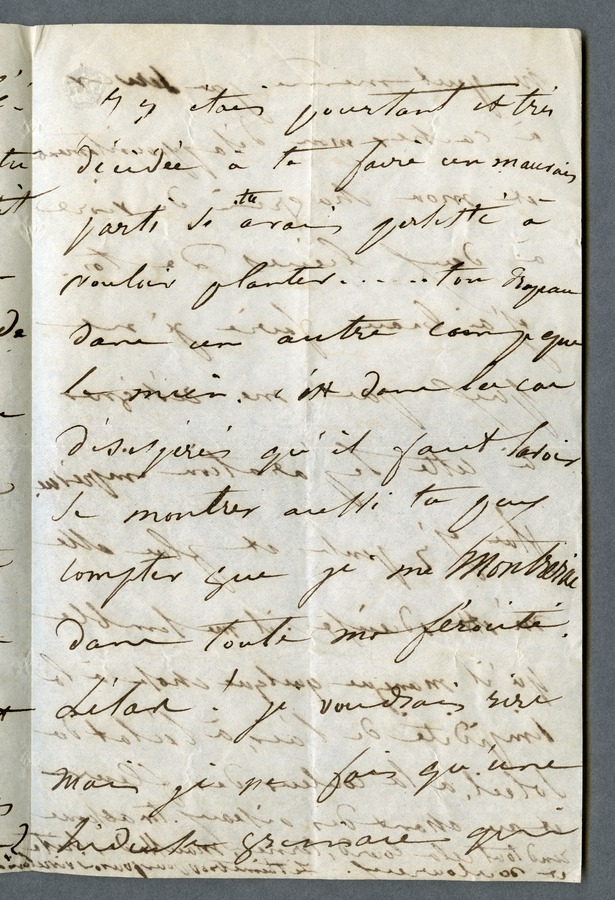 j'y étais pourtant et très
décidée à te faire un mauvais
parti si tu avais persisté à
vouloir planter...... ton drapeau
dans un autre camp que
le mien. c'est dans les cas
désespérés qu'il faut savoir
se montrer aussi tu peux
compter que je me montrerai
dans toute ma férocité.
hélas! je voudrais rire
mais je ne fais qu'une
hideuse grimace qui